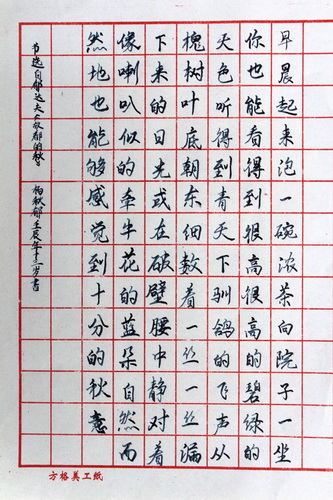 早晨起来泡一碗浓茶向院子一坐
你也能看得到很高很高的碧绿的
天色听得到青天下驯鸽的飞声从
槐树叶底朝东细数着一丝一丝漏
下来的日光或在破壁腰中静对着
像喇叭似的牵牛花的蓝朵自然而
然地也能够感觉到十分的秋意
节选自郁达夫《故都的秋》 杨秋郁壬辰年十二岁书
方格美工纸